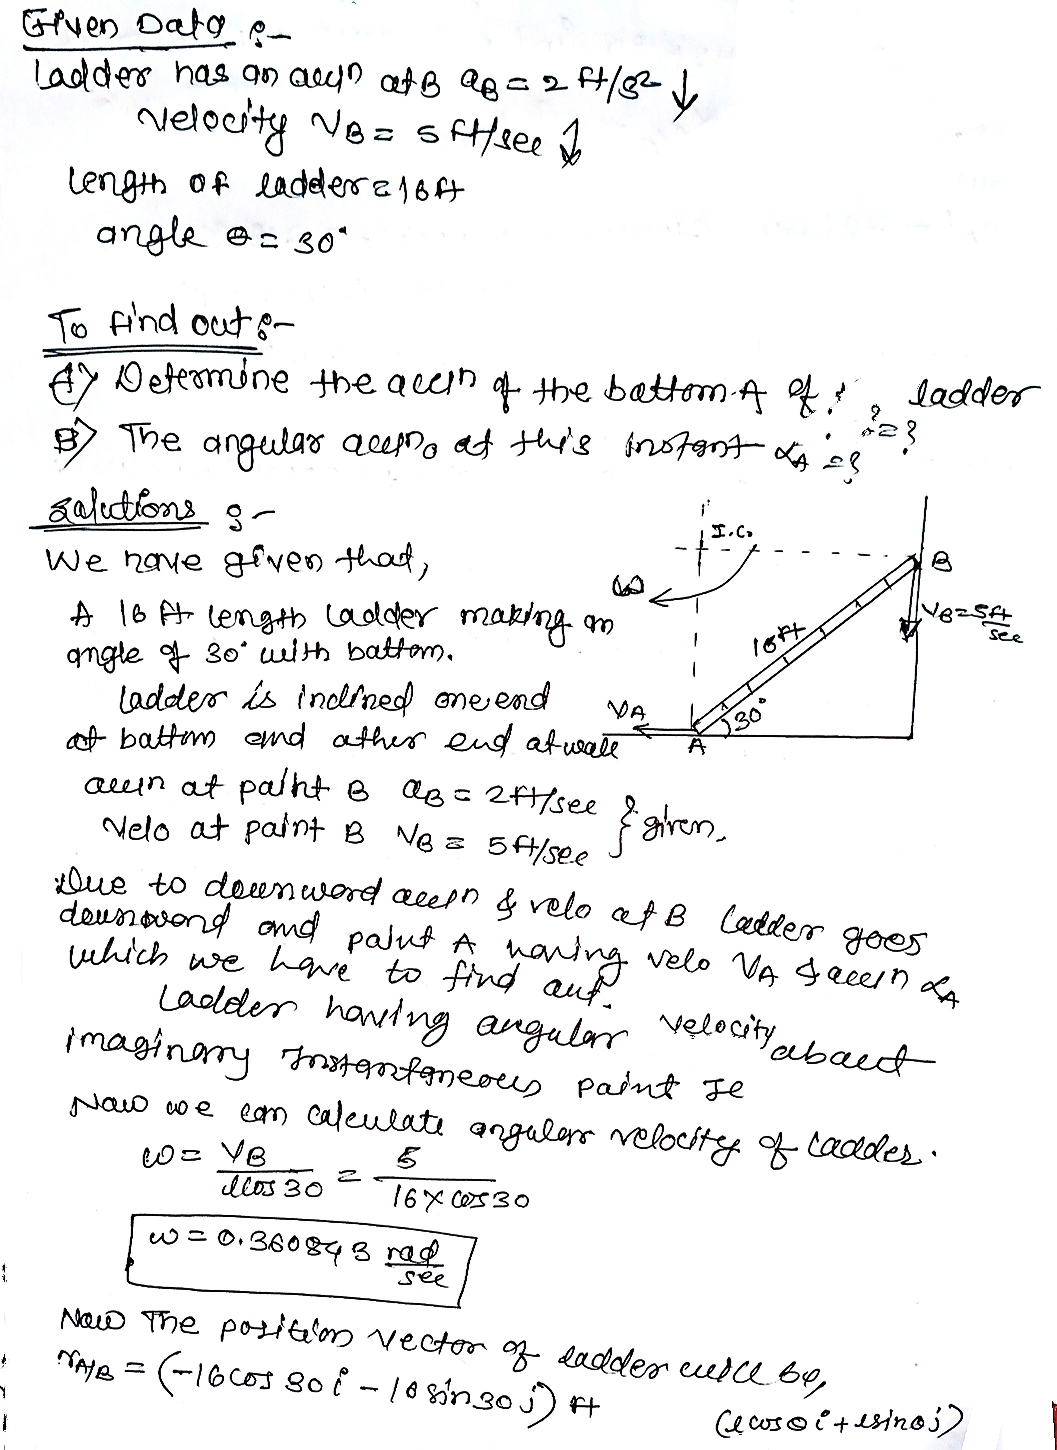 Given Data :-
Ladder has an accn at B aB = 2 ft/s2 ↓
Velocity VB = 5 ft/sec ↓
Length of ladder = 16ft
angle θ = 30°
To find out :-
A) Determine the accn of the bottom A of ladder = ?
B) The angular accn, at this instant αA = ?
Solutions :-
We have given that,
A 16 ft length ladder making an
angle of 30° with bottom.
ladder is inclined one end
at bottom and other end at wall
I.C.
ω
B
VB = 5 ft/sec
16ft
30°
VA
A
accn at point B aB = 2 ft/sec
Velo at point B VB = 5 ft/sec } given.
Due to downword accn & velo at B Ladder goes
downword and point A having velo VA & accn αA
which we have to find out.
Ladder having angular velocity about
imaginary Instantaneous point Ic
Now we can calculate angular velocity of Ladder.
ω = VB / lcos 30 = 5 / 16 × cos 30
ω = 0.360843 rad/sec
Now The position vector of ladder will be,
rA/B = (-16cos 30 i - 16 sin 30 j) ft
(lcosθ i + lsinθ j)